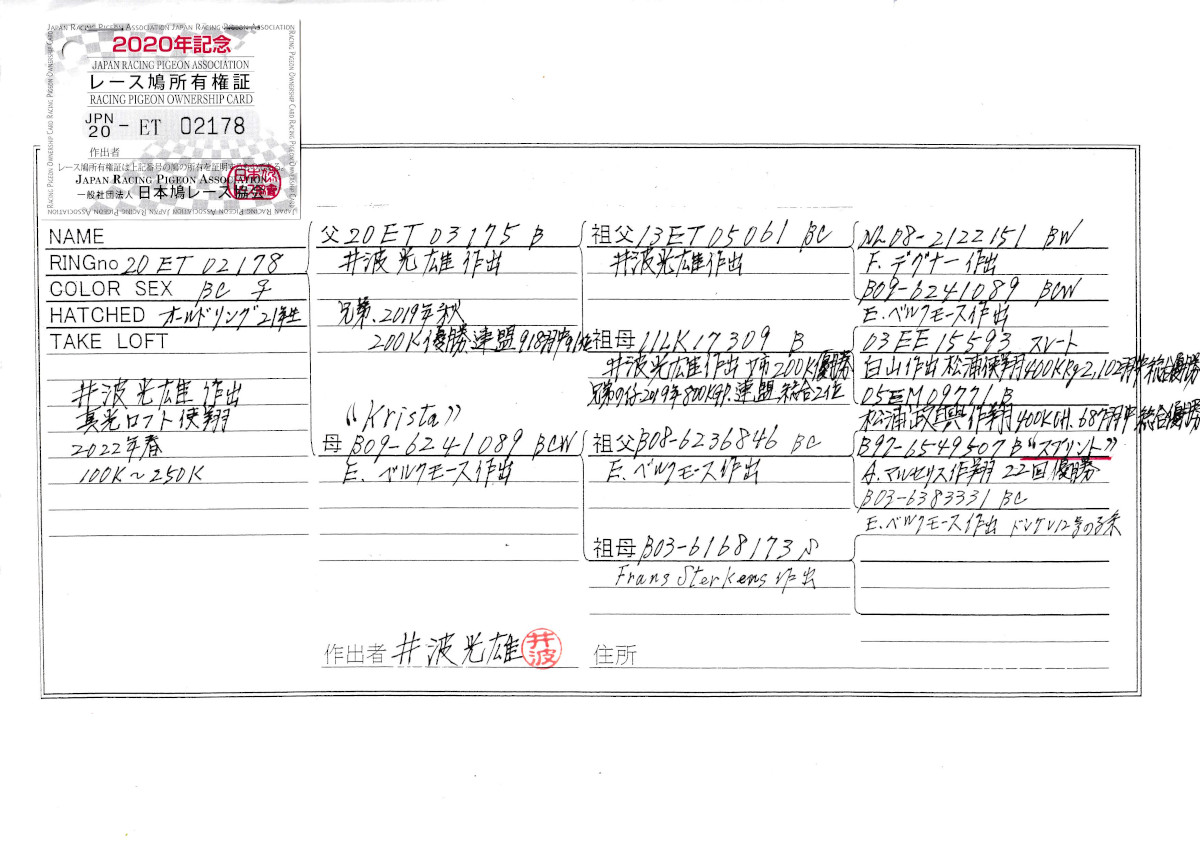 JAPAN RACING PIGEON ASSOCIATION JAPAN RACING PIGEON ASSOCIATION
2020年記念
JAPAN RACING PIGEON ASSOCIATION
レース鳩所有権証
RACING PIGEON OWNERSHIP CARD
JPN 20 - ET 02178
作出者
レース鳩所有権証は上記番号の鳩の所有を証明する
JAPAN RACING PIGEON ASSOCIATION
一般社団法人 日本鳩レース協会
NAME
RINGno 20 ET 02178
COLOR SEX BC ♀
HATCHED オールドリング21年生
TAKE LOFT
井波光雄 作出
真光ロフト使翔
2022年春
100K~250K
父 20ET 03175 B
井波光雄 作出
兄弟、2019年秋
200K優勝連盟918羽中
"Krista"
母 B09-6241089 BCW
E.ベルクモース作出
作出者 井波光雄 井波
祖父 13ET05061 BC
井波光雄作出
祖母 11LK17309 B
井波光雄作出 200K優勝
兄弟の仔2019年800KGP.連盟総合2位
祖父 B08-6236846 BC
E.ベルクモース作出
祖母 B03-6168173 S
Frans Sterkens 作出
住所
NL08-2122151 BW
F.デグナー作出
B09-6241089 BCW
E.ベルクモース作出
03EE15593 スレート
白山作出 松浦使翔400KRg2,102羽中総合優勝
05EM09771 B
松浦政真 作翔400KCH.687羽中総合優勝
B97-6549507 B "スプリント"
A.マルセリス作翔 22回優勝
B03-6383331 BC
E.ベルクモース作出